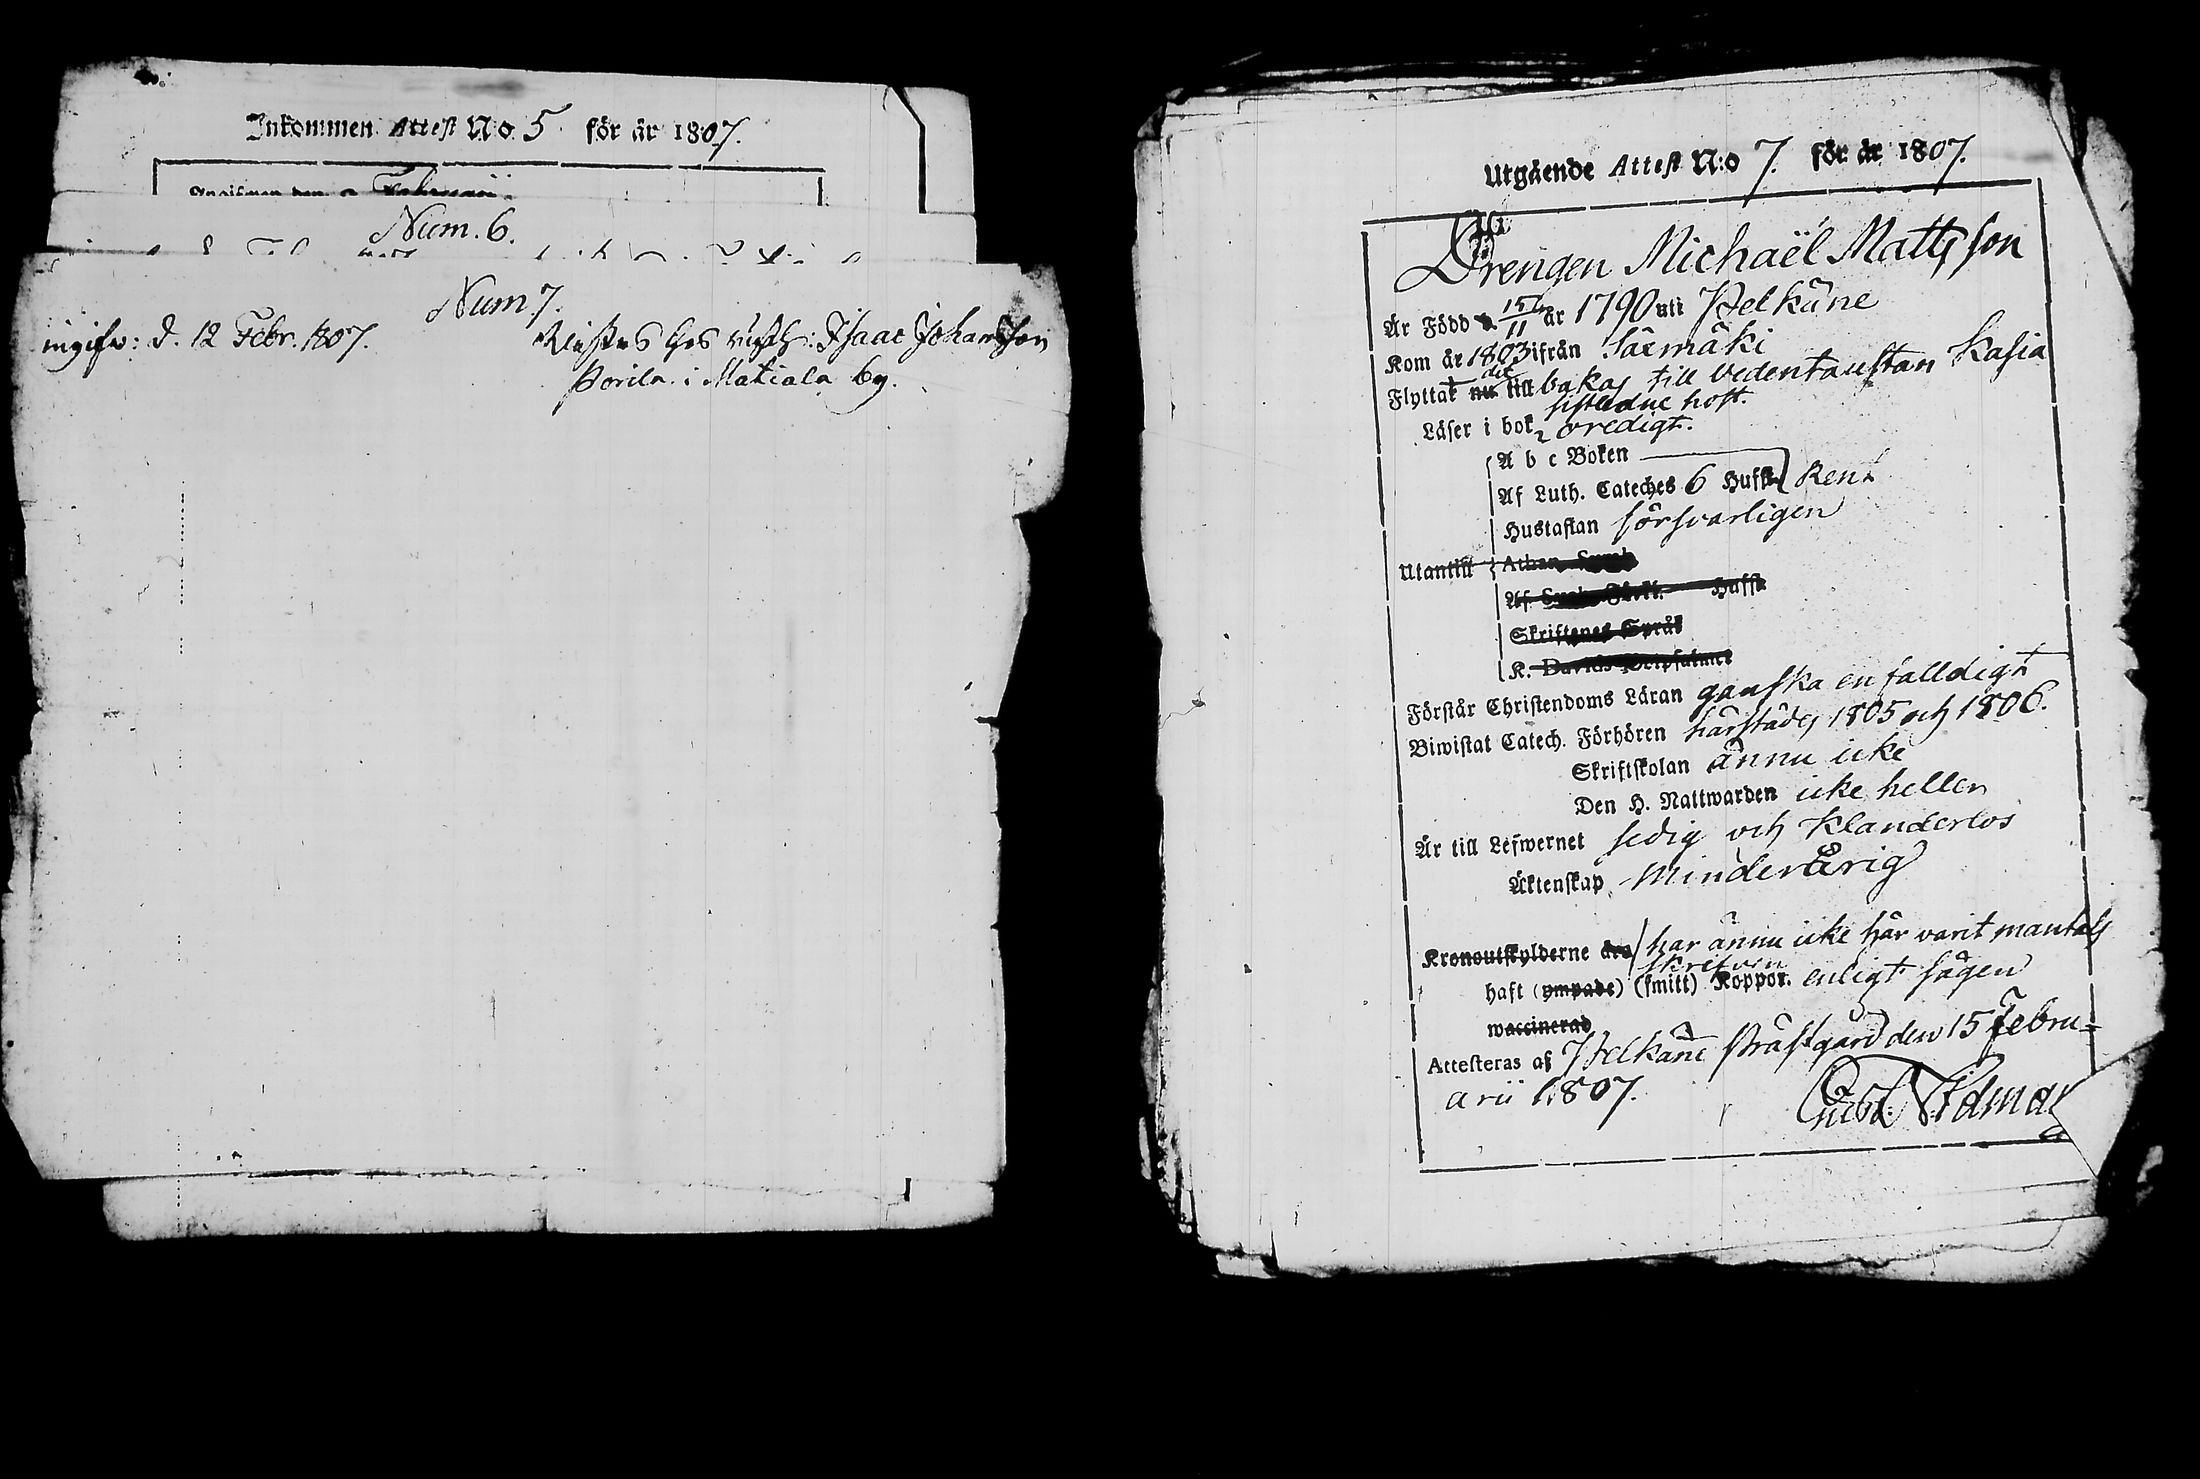 Inkommen Attest No. 5 för år 1807.
Num. 6.
Num 7.
ingifv: d. 12 Febr. 1807.
hos Isaac Johansson
Porila i Matiala by.
Utgående Attest N:o 7. för år 1807.
Drengen Michaël Mattsson
Är Född d. 15/11 år 1790 uti Pelkäne
Kom år 1803 ifrån Särmäki
Flyttat nu till bakas till Vedentaustan Kasia
sistledne host.
Läser i bok oredigt.
A b c Boken
Af Luth. Cateches 6 Hufst. Rent
Hustaflan försvarligen
Utantill Athan. Symb
Af Hufst
Skriftenes Språk
K. Davids Botpsalmer
Förstår Christendoms Läran ganska enfalldigt
Biwistat Catech. Förhören härstädes 1805 och 1806.
Skriftskolan ännu icke
Den H. Nattwarden icke heller
Är till Lefwernet sedig och Klanderlos
Äktenskap Minderårig
Kronoutskylderne har ännu icke här varit mantals
skrifven
haft (ympade) (smitt) Koppor. enligt sägen
waccinerad
Attesteras af Pelkäne Prästgård den 15 Febru-
arii 1807.
Gust. Vidma